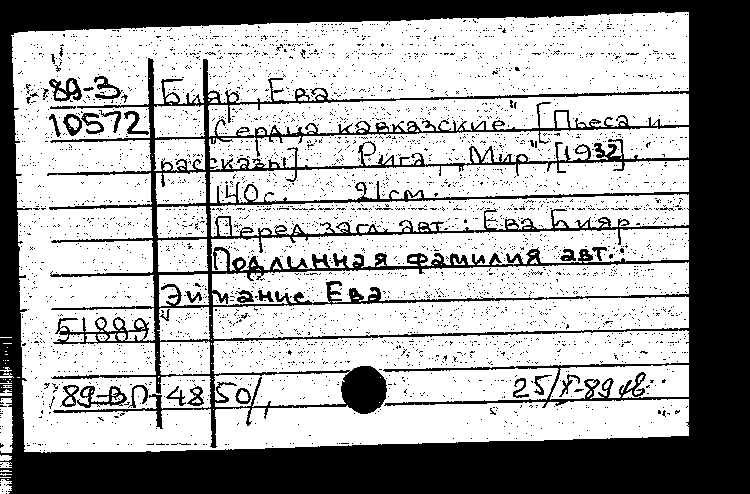 89-3
Бияр, Ева
10572
„Сердца кавказские". [Пьеса и
рассказы]. Рига, „Мир", [1932].
140с. 21см.
Перед загл. авт.: Ева Бияр.
Подлинная фамилия авт.:
Ева
51889
89-ВП-4850/,
25/X-89